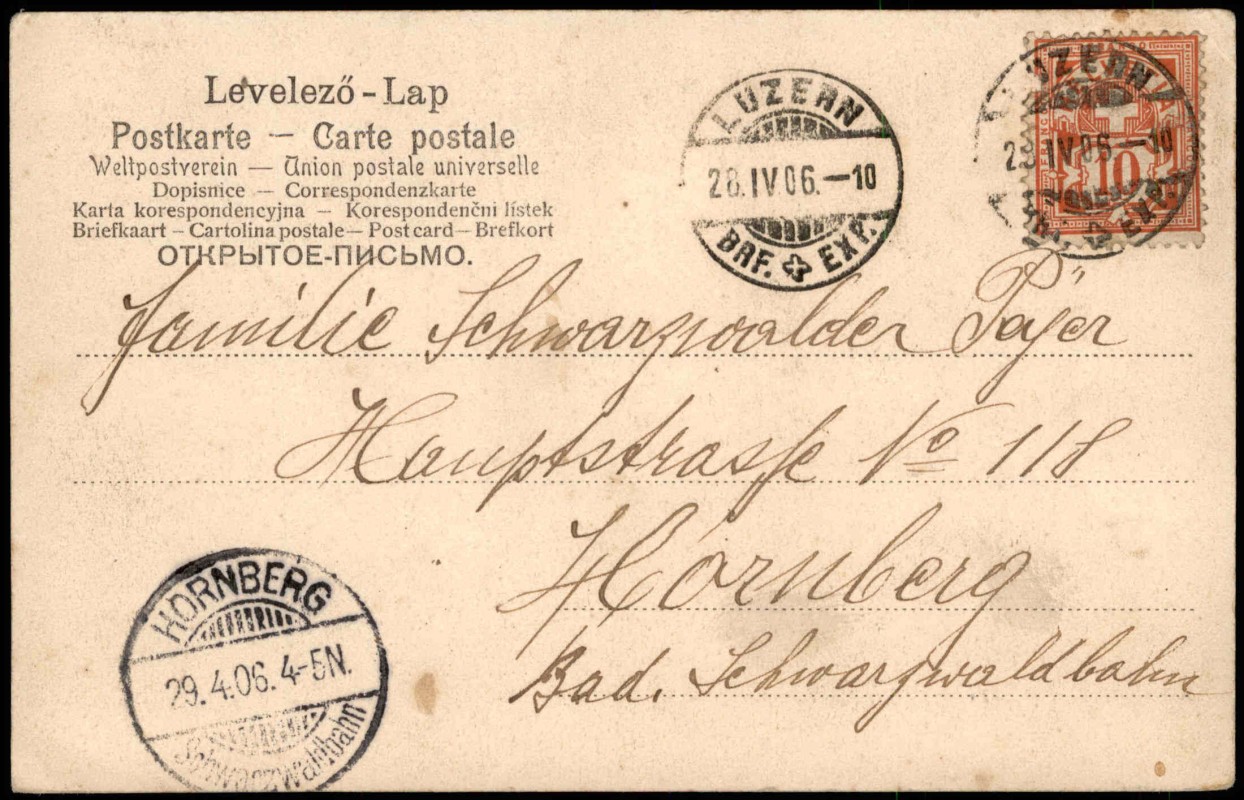 Levelező-Lap
Postkarte — Carte postale
Weltpostverein — Union postale universelle
Dopisnice — Correspondenzkarte
Karta korespondencyjna — Korespondenčni lístek
Briefkaart – Cartolina postale – Post card – Brefkort
ОТКРЫТОЕ-ПИСЬМО.
LUZERN
28.IV.06.–10
BRF. EXP.
LUZERN
28.IV.06.–10
10
Familie Schwarzwälder
Hauptstrasse No 118
Hornberg
Bad. Schwarzwaldbahn
HORNBERG
29.4.06. 4-5N.
Schwarzwaldbahn